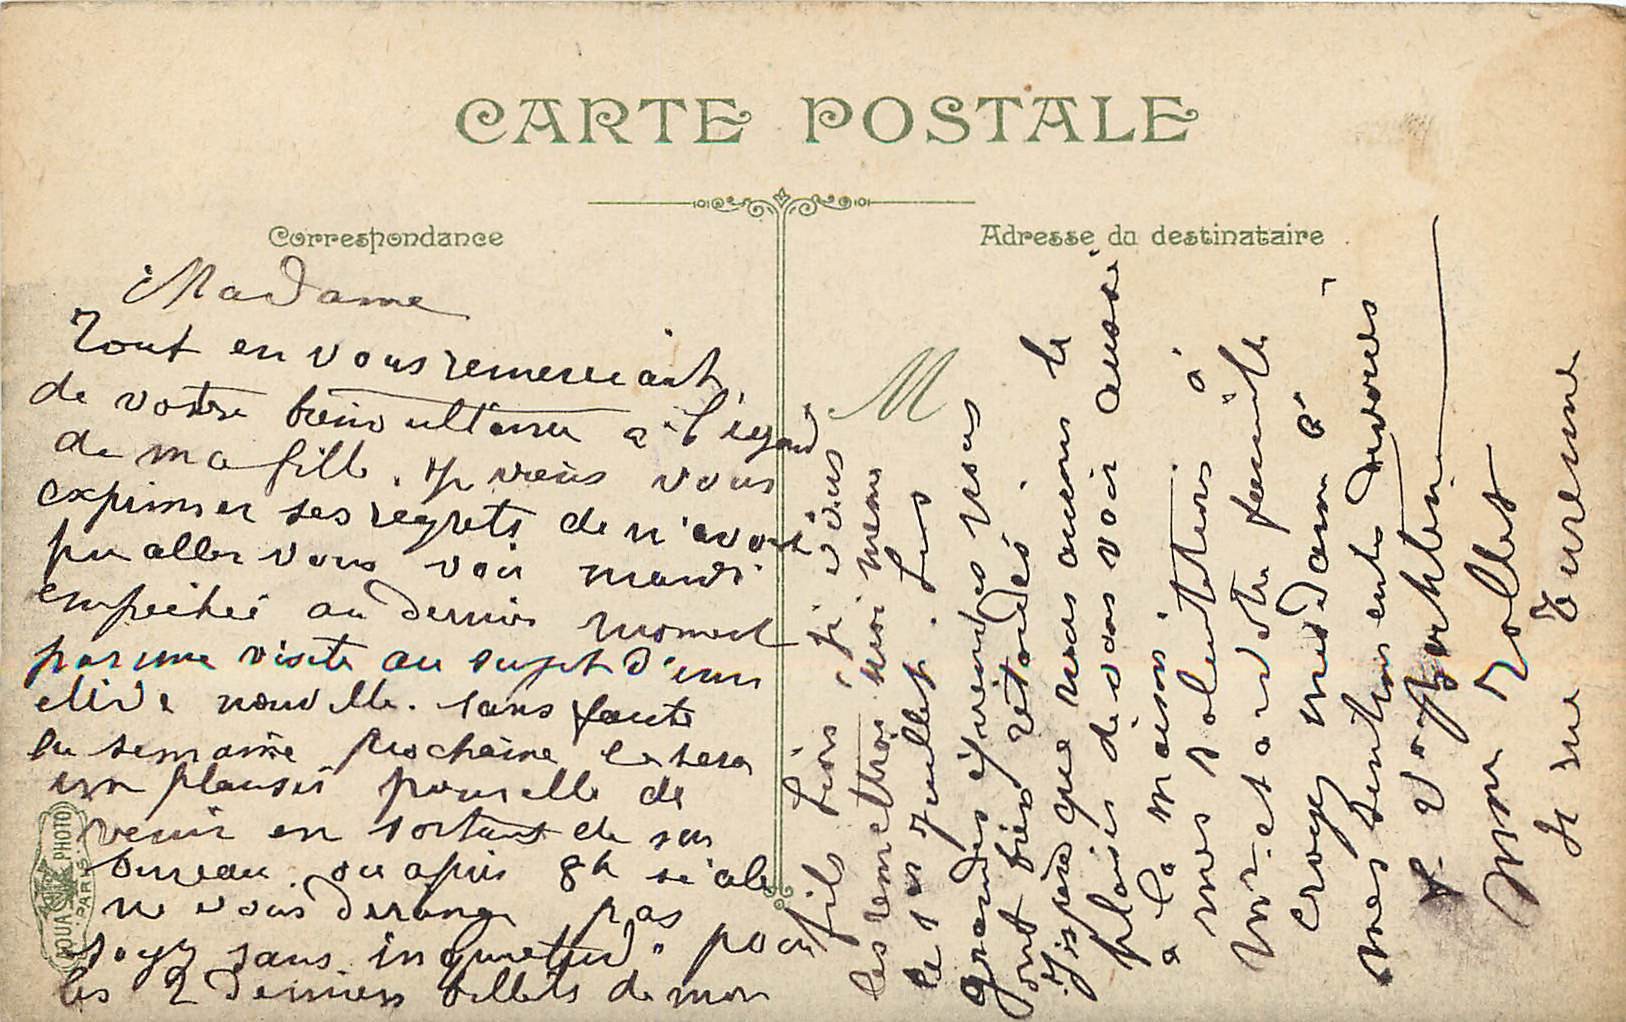 CARTE POSTALE
Correspondance
Adresse du destinataire
M
Madame
Tout en vous remerciant
de votre à l'égard
de ma fille. Je viens vous
exprimer ses regrets de n'avoir
pu aller vous voir mardi
empêchée au dernier moment
par une visite au sujet d'un
élève nouvelle. sans faute
la semaine prochaine ce sera
un plaisir pour elle de
venir en sortant de son
bureau. ou après 8h si cela
ne vous derange pas
soyez sans inquietud. pour
les 2 derniers billets de mon
fils Léon. je vous
les remettrai moi meme
le 15 Juillet. Les
grandes épreuves nous
ont bien retardés.
J'espère que nous aurons le
plaisir de vous voir aussi
a la maison.
mes salutations à
Mr. et a votre famille
croyez madame à
mes sentiments devoués
Mme Rollet
rue Turenne
AQUA PHOTO
PARIS